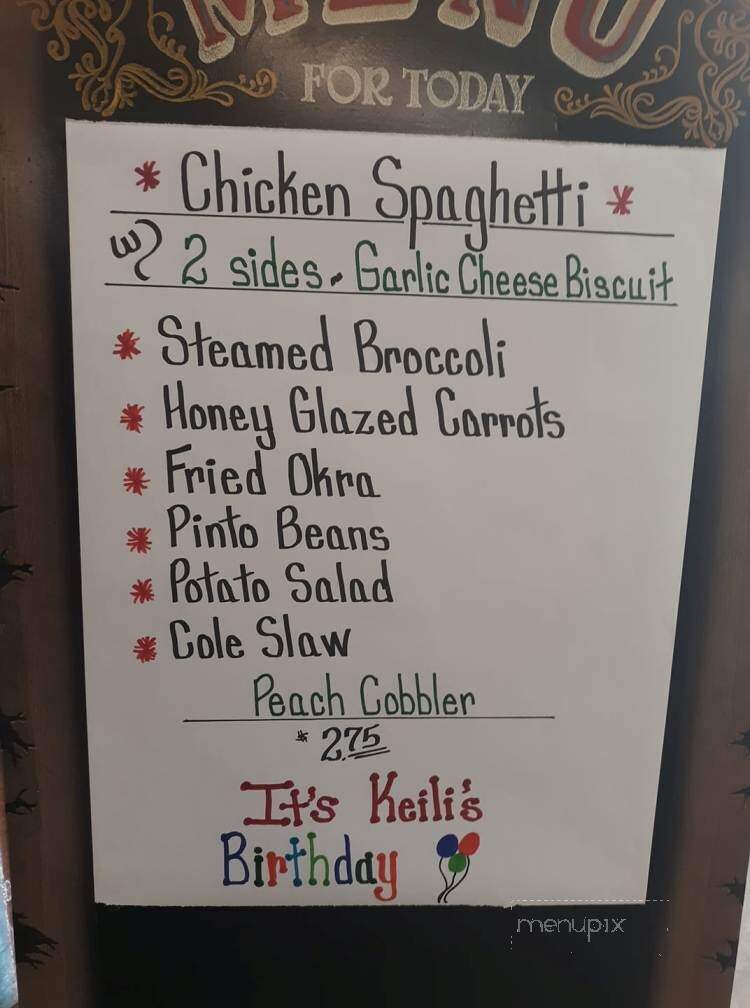 MENU
FOR TODAY
* Chicken Spaghetti *
w/ 2 sides - Garlic Cheese Biscuit
* Steamed Broccoli
* Honey Glazed Carrots
* Fried Okra
* Pinto Beans
* Potato Salad
* Cole Slaw
Peach Cobbler
* 2.75
It's Keili's
Birthday
menupix